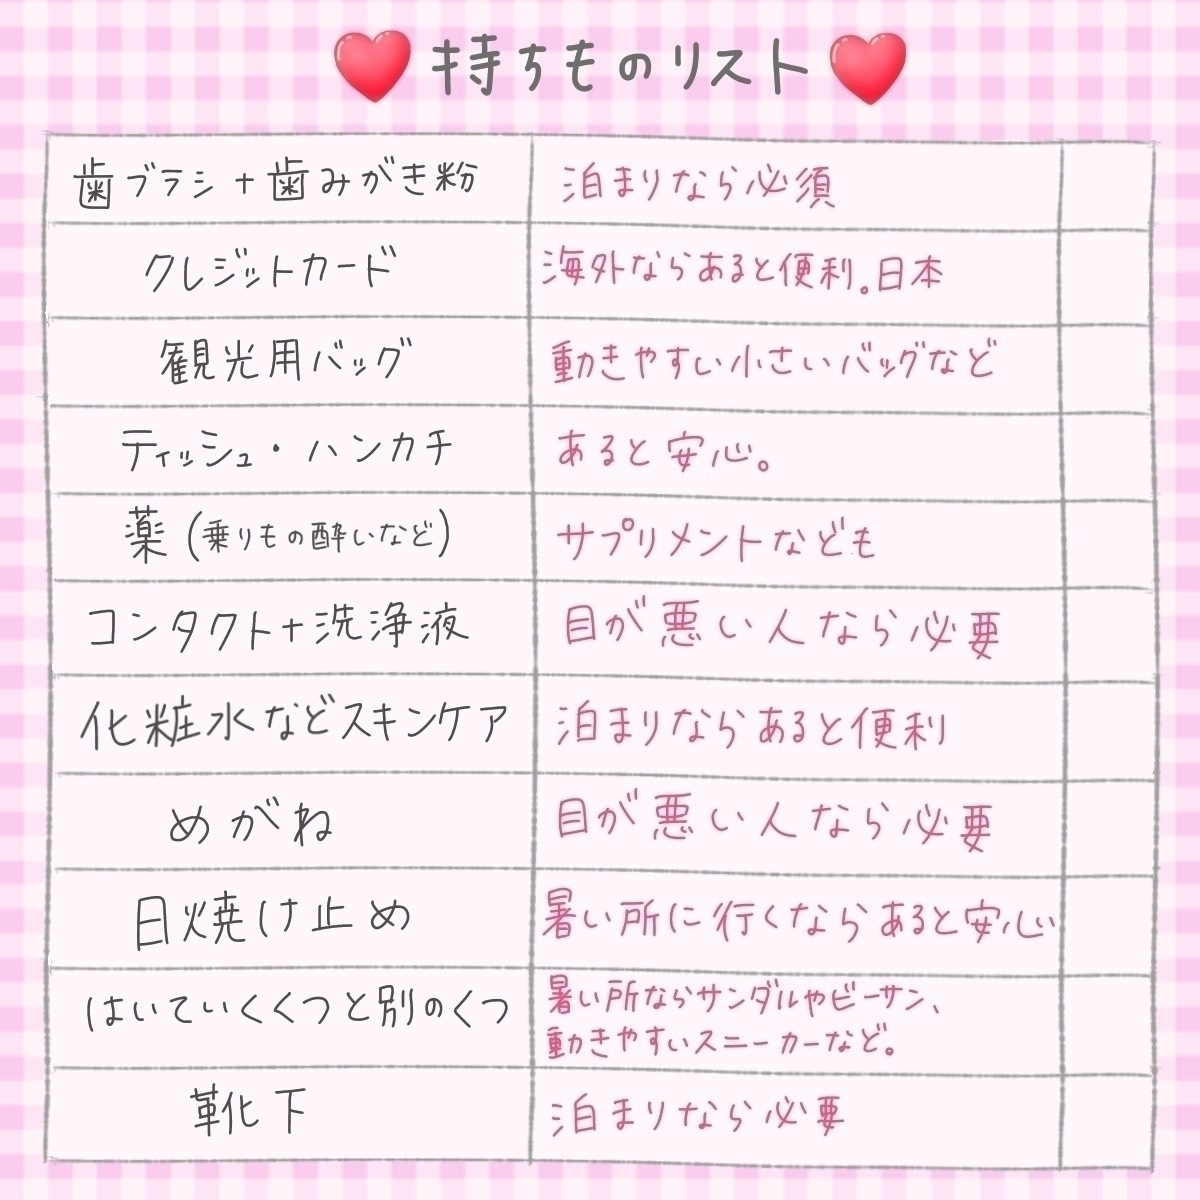 持ちものリスト
歯ブラシ+歯みがき粉 泊まりなら必須
クレジットカード 海外ならあると便利。日本
観光用バッグ 動きやすい小さいバッグなど
ティッシュ・ハンカチ あると安心。
薬(乗りもの酔いなど) サプリメントなども
コンタクト+洗浄液 目が悪い人なら必要
化粧水などスキンケア 泊まりならあると便利
めがね 目が悪い人なら必要
日焼け止め 暑い所に行くならあると安心
はいていくくつと別のくつ 暑い所ならサンダルやビーサン、
動きやすいスニーカーなど。
靴下 泊まりなら必要